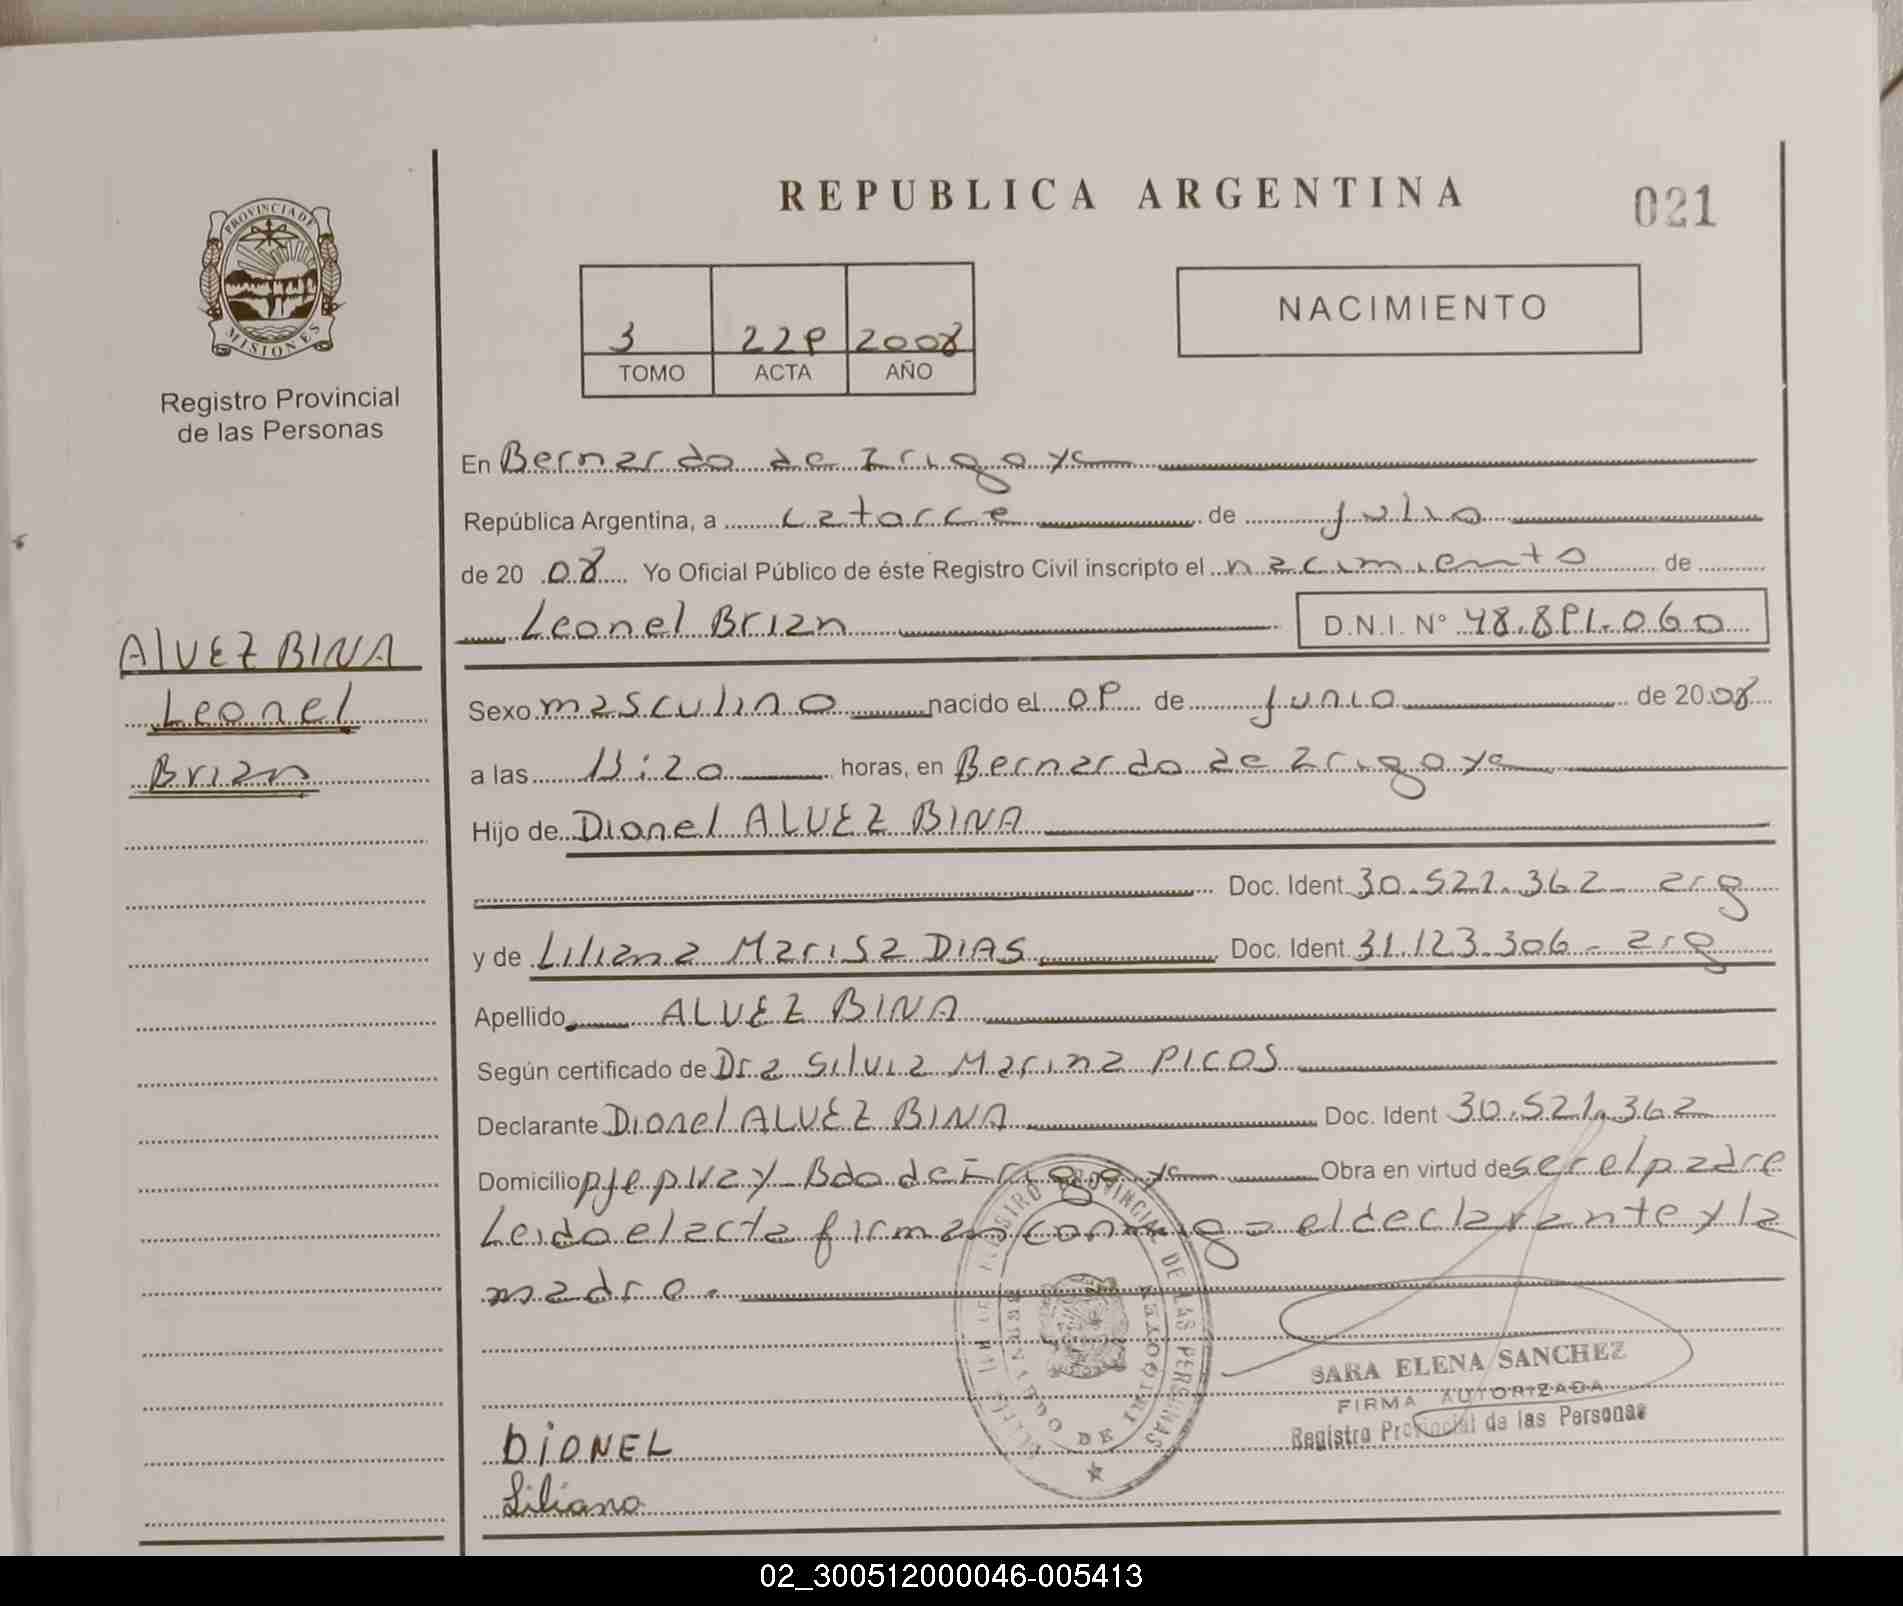 REPUBLICA ARGENTINA
021
PROVINCIA DE
MISIONES
Registro Provincial
de las Personas
3 229 2008
TOMO ACTA AÑO
NACIMIENTO
En Bernardo de Irigoye
República Argentina, a catorce de julio
de 20 08 Yo Oficial Público de éste Registro Civil inscripto el nacimiento de
Leonel Brian D.N.I. N° 48.891.060
ALVEZ BINA
Leonel
Brian
Sexo masculino nacido el 09 de junio de 2008
a las 13:20 horas, en Bernardo de Irigoye
Hijo de Dionel ALVEZ BINA
Doc. Ident 30.521.362 arg
y de Liliana Marisa DIAS Doc. Ident. 31.123.306 - arg
Apellido ALVEZ BINA
Según certificado de Dra Silvia Marina PICOS
Declarante Dionel ALVEZ BINA Doc. Ident 30.521.362
Domicilio pje pvay - Bdo de Irigoye Obra en virtud de ser el padre
Leido el acta firman conmigo el declarante y la
madre.
REGISTRO PROVINCIAL DE LAS PERSONAS
SARA ELENA SANCHEZ
FIRMA AUTORIZADA
Registro Provincial de las Personas
DIONEL
Liliana
02_300512000046-005413